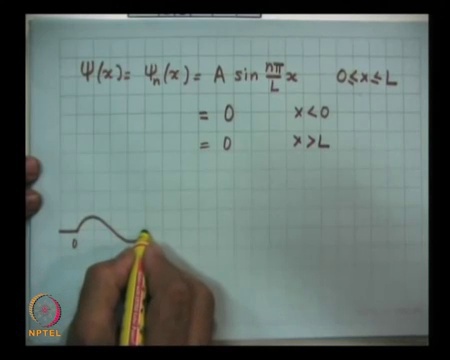 Ψ(x) = Ψₙ(x) = A sin nπ/L x    0 ≤ x ≤ L
= 0    x < 0
= 0    x > L
0
NPTEL